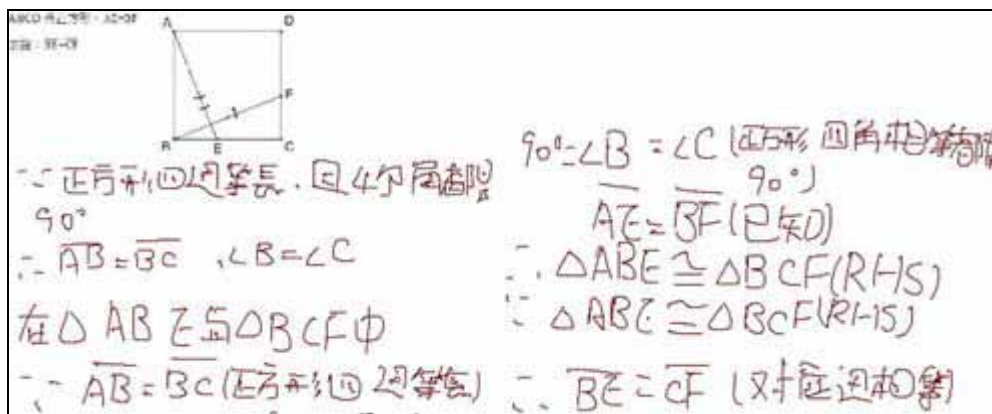 ABCD 為正方形，AE=BF
求證：BE=CF
A D
F
B E C
∵ 正方形四邊等長、且4個角都是
90°
∴ AB=BC ,∠B=∠C
在△ABE与△BCF中
∵ AB=BC(正方形四邊等長)
90°=∠B=∠C(正方形四角相等都是
90°)
AE=BF(已知)
∴ △ABE≅△BCF(RHS)
∵ △ABE≅△BCF(RHS)
∴ BE=CF (对应边相等)